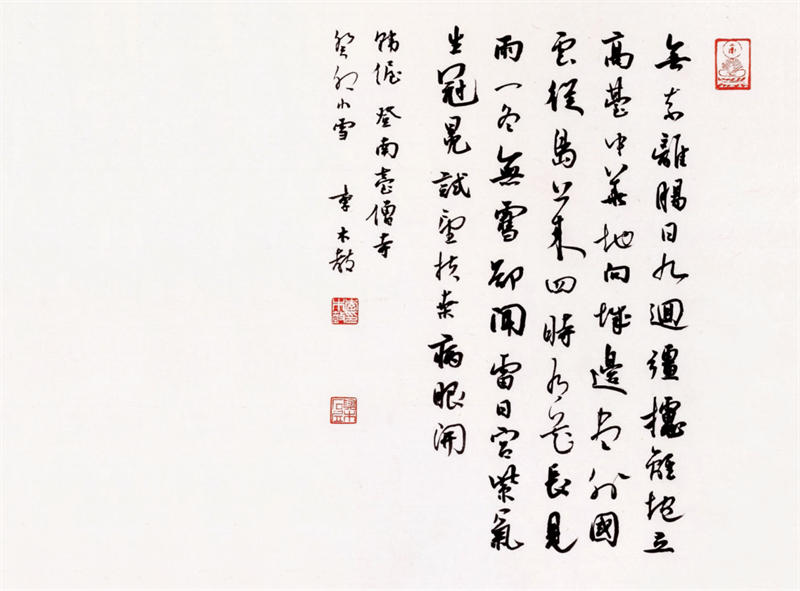 無奈離腸日九迴彊攄離抱立
高臺中華地向城邊盡外國
雲從島上來四時有花長見
雨一冬無雪卻聞雷日宮紫氣
生冠冕試望扶桑病眼開
韓偓 登南臺僧寺
癸卯小雪 李木教